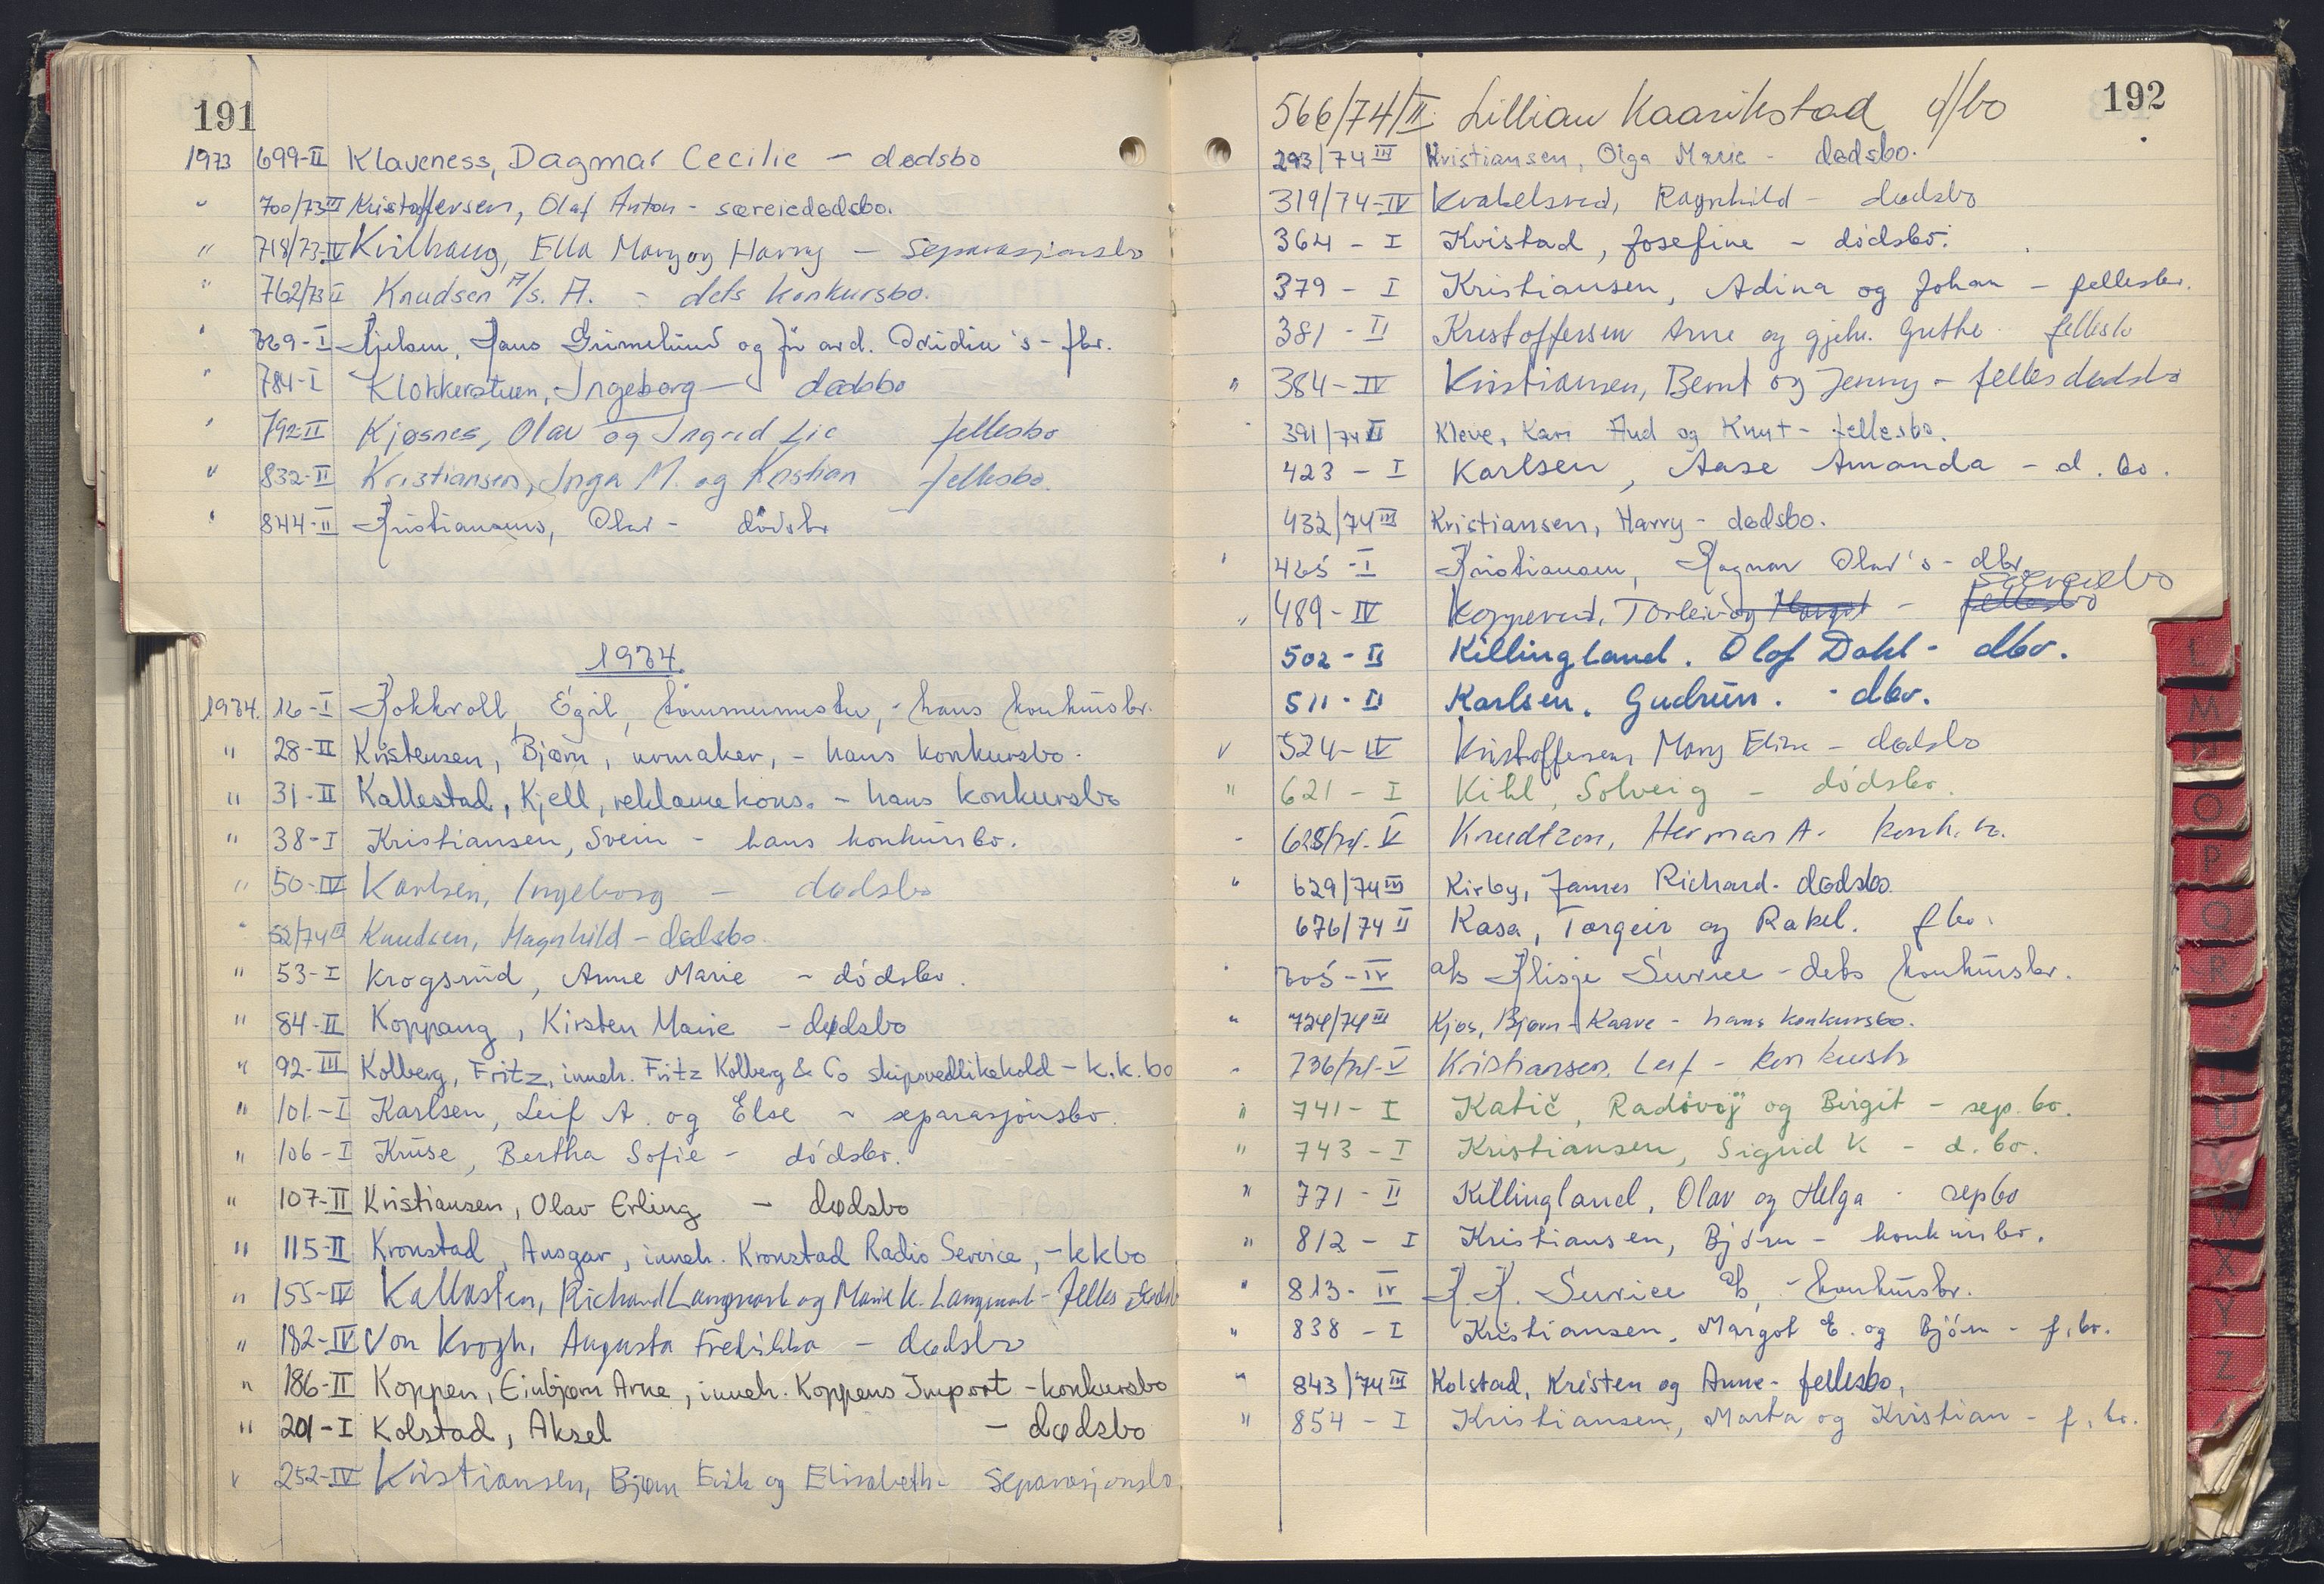 191
1973 699-II Klaveness, Dagmar Cecilie - dødsbo
" 700/73 III Kristoffersen, Olaf Anton - særeiedødsbo.
" 718/73-IV Kvilhaug, Ella Mary og Harry - Separasjonsbo
" 762/73 II Knudsen A/s. A. - dets konkursbo.
" 769-I Hans Grimelund og - fbo.
" 784-I Klokkerstuen, Ingeborg - dødsbo
" 792-II Kjøsnes, Olav og Ingrid Lie fellesbo
" 832-II Kristiansen, Inga M. og Kristian fellesbo.
" 844-II Kristiansens, Olav - dødsbo
1974.
1974. 16-I Kokkvoll, Egil, tømmermester, - hans konkursbo.
" 28-II Kristensen, Bjørn, urmaker, - hans konkursbo.
" 31-II Kallestad, Kjell, reklamekons. - hans konkursbo
" 38-I Kristiansen, Svein - hans konkursbo.
" 50-IV Karlsen, Ingeborg - dødsbo
" 52/74 III Knudsen, Magnhild - dødsbo.
" 53-I Krogsrud, Anne Marie - dødsbo.
" 84-II Koppang, Kirsten Marie - dødsbo
" 92-III Kolberg, Fritz, inneh. Fritz Kolberg & Co skipsvedlikehold - k.k.bo
" 101-I Karlsen, Leif A. og Else - separasjonsbo.
" 106-I Kruse, Bertha Sofie - dødsbo.
" 107-II Kristiansen, Olav Erling - dødsbo
" 115-II Kronstad, Ansgar, inneh. Kronstad Radio Service, - kkbo
" 155-IV Richard Langmark og Marie K. Langmark - Felles dødsb
" 182-IV Von Krogh, Augusta Fredrikka - dødsbo
" 186-II Koppen, Einbjørn Arne, inneh. Koppens Import - konkursbo
" 201-I Kolstad, Aksel - dødsbo
" 252-IV Kristiansen, Bjørn Erik og Elisabeth - Separasjonsbo.
192
566/74/II. Lillian Kaarikstad d/bo
293/74 III Kristiansen, Olga Marie - dødsbo.
319/74-IV Ragnhild - dødsbo
364 - I Kvistad, Josefine - dødsbo.
379 - I Kristiansen, Adina og Johan - fellesbo.
381 - II Kristoffersen Arne og gjenl. Grethe fellesbo
" 384-IV Kristiansen, Bernt og Jenny - felles dødsbo
" 391/74 III Kleve, Kari Aud og Knut - fellesbo.
423 - I Karlsen, Aase Amanda - d.bo.
432/74 III Kristiansen, Harry - dødsbo.
" 465 - I Kristiansen, Ragnar Olav's - dbo
særeiebo
" 489 - IV Kopperud, Torleiv og Margit - fellesbo
502 - II Killingland. Olof Dahl - dbo.
511 - II Karlsen. Gudrun. - dbo.
" 524-IV Kristoffersen, Mary Elise - dødsbo
" 621 - I Kihl, Solveig - dødsbo.
" 628/74-V Knudtzon, Herman A. konk.bo.
" 629/74 III Kirby, James Richard - dødsbo.
676/74 II Kasa, Torgeir og Rakel. fbo.
" 705-IV Service - dets konkursbo.
" 724/74 III Kjos, Bjørn Kaare - hans konkursbo.
" 736/74-V Kristiansen, Leif - konkursbo
" 741 - I Katič, Radivoj og Birgit - sep.bo.
" 743 - I Kristiansen, Sigrid K - d.bo.
" 771 - II Killingland, Olav og Helga - sepbo
" 812 - I Kristiansen, Bjørn - konkursbo.
" 813 - IV K.K. Service A/s, - konkursbo.
" 838 - I Kristiansen, Margot E. og Bjørn - f.bo.
" 843/74 III Kolstad, Kristen og Anne - fellesbo.
" 854 - I Kristiansen, Marta og Kristian - f.bo.
L
M
N
O
P
Q
R
T
U
V
W
X
Y
Z